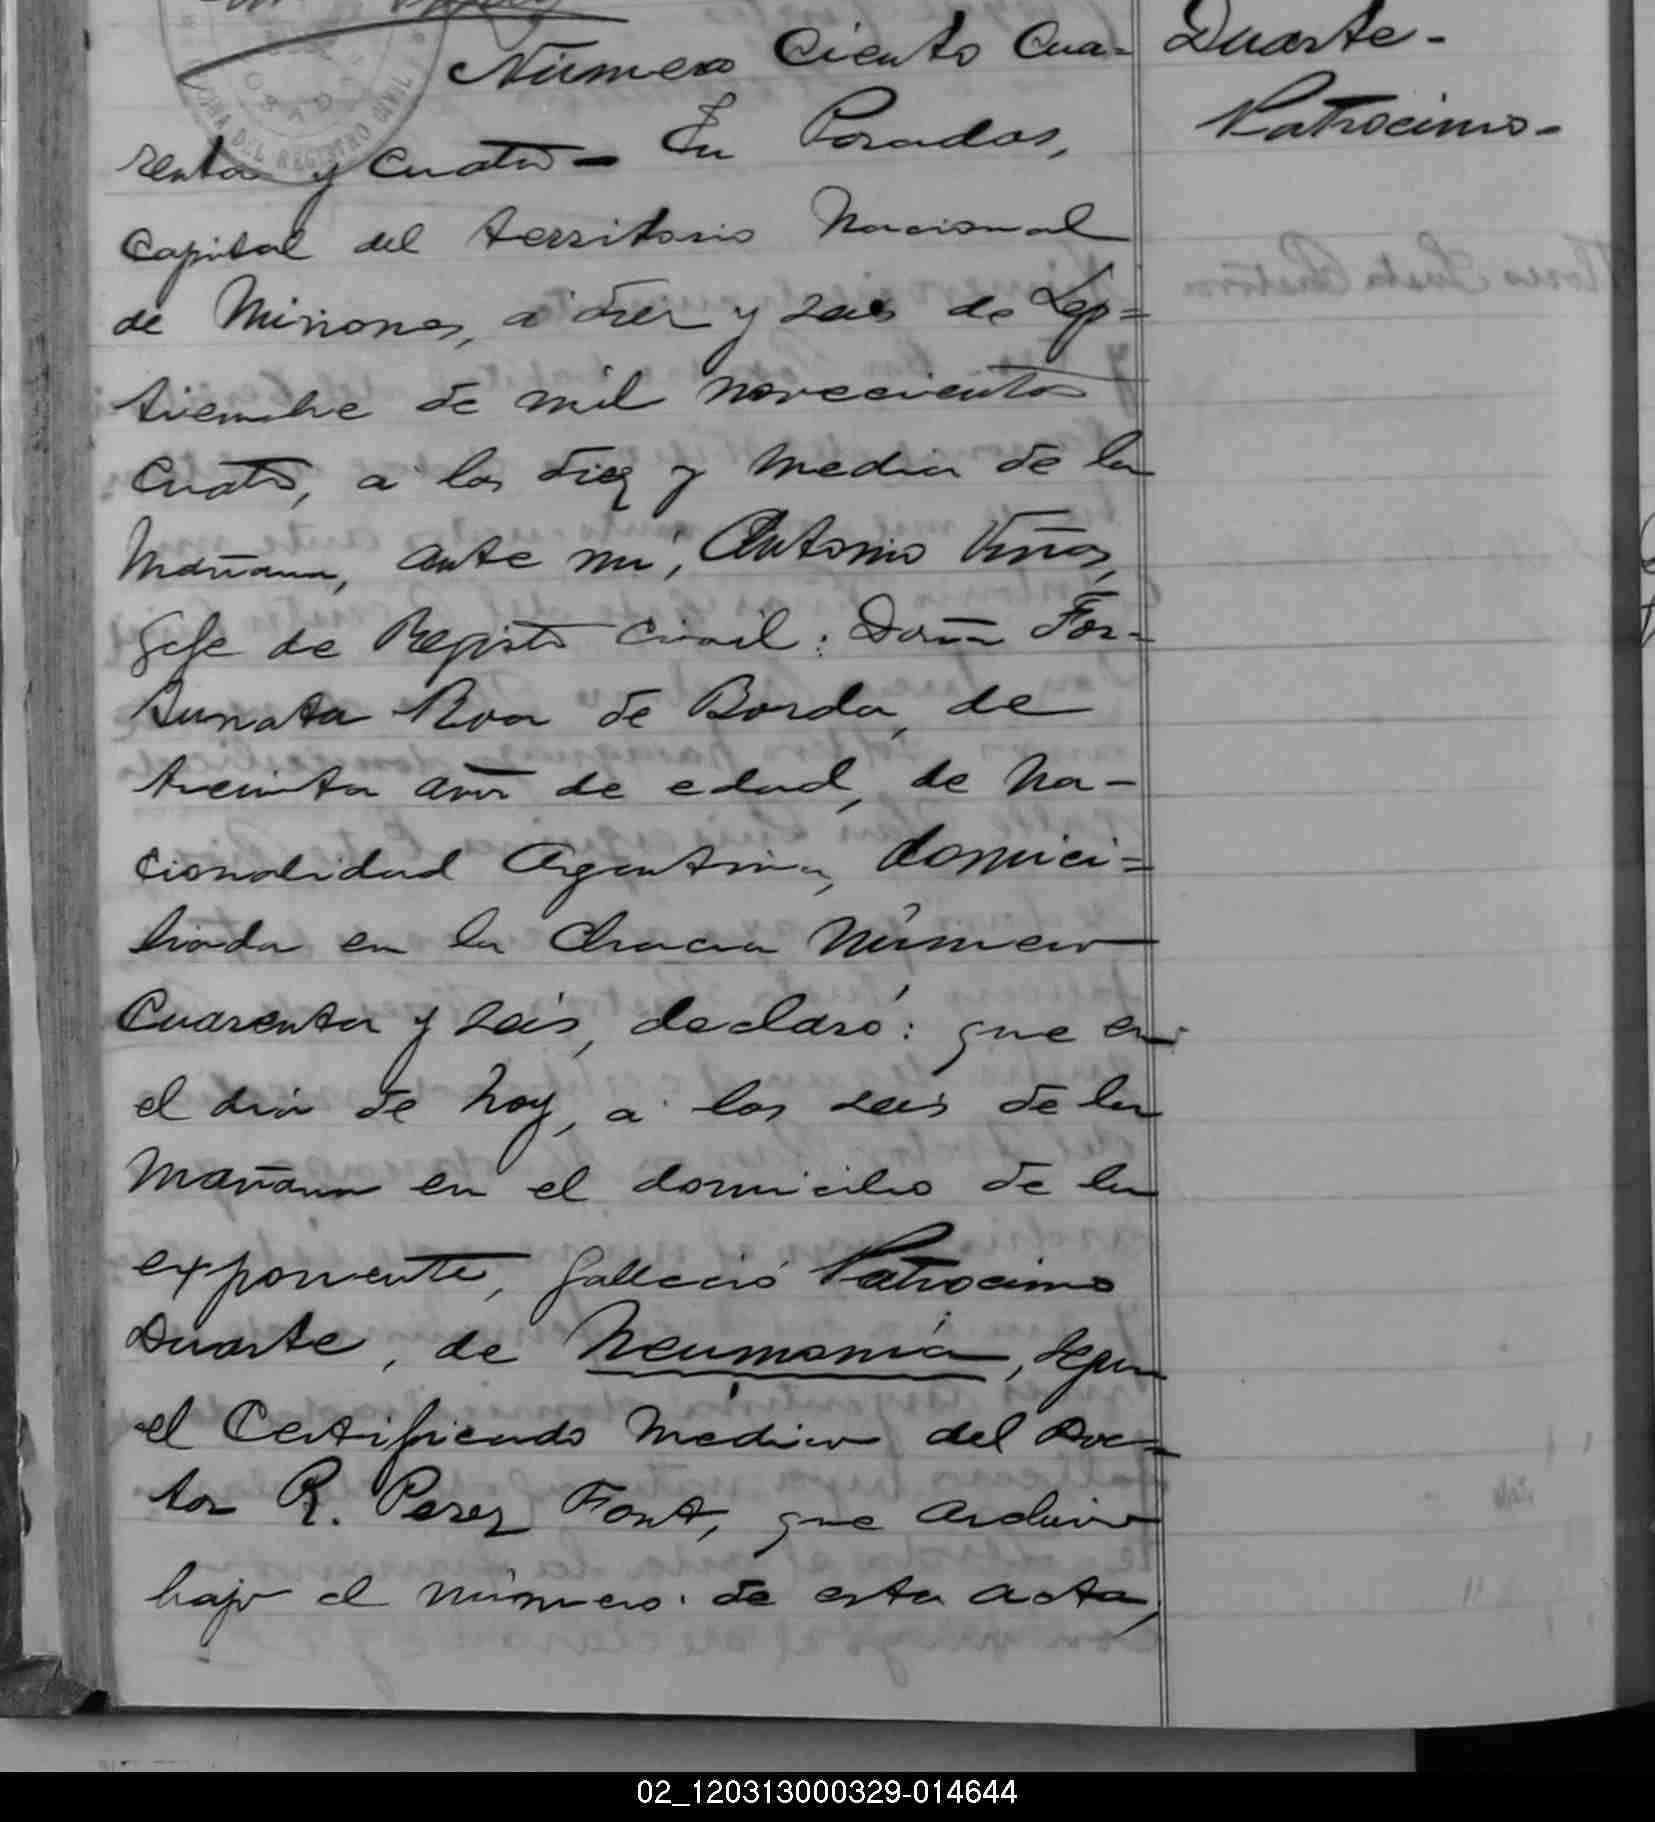 Número Ciento Cua-
renta y Cuatro – En Posadas,
Capital del territorio Nacional
de Misiones, a diez y seis de Sep=
tiembre de mil novecientos
Cuatro, a las diez y media de la
Mañana, ante mi, Antonio Viñas,
Gefe de Registro Civil: Doña For-
tunata Roa de Borda, de
treinta años de edad, de na-
cionalidad Argentina, domici=
liada en la Chacra Número
Cuarenta y seis, declaró: que en
el dia de hoy, a las seis de la
Mañana en el domicilio de la
exponente, falleció Patrocinio
Duarte, de Neumonía, segun
el Certificado Medico del Doc=
tor R. Perez Font, que archivo
bajo el número de esta acta,
Duarte -
Patrocinio -
DEL REGISTRO CIVIL
02_120313000329-014644